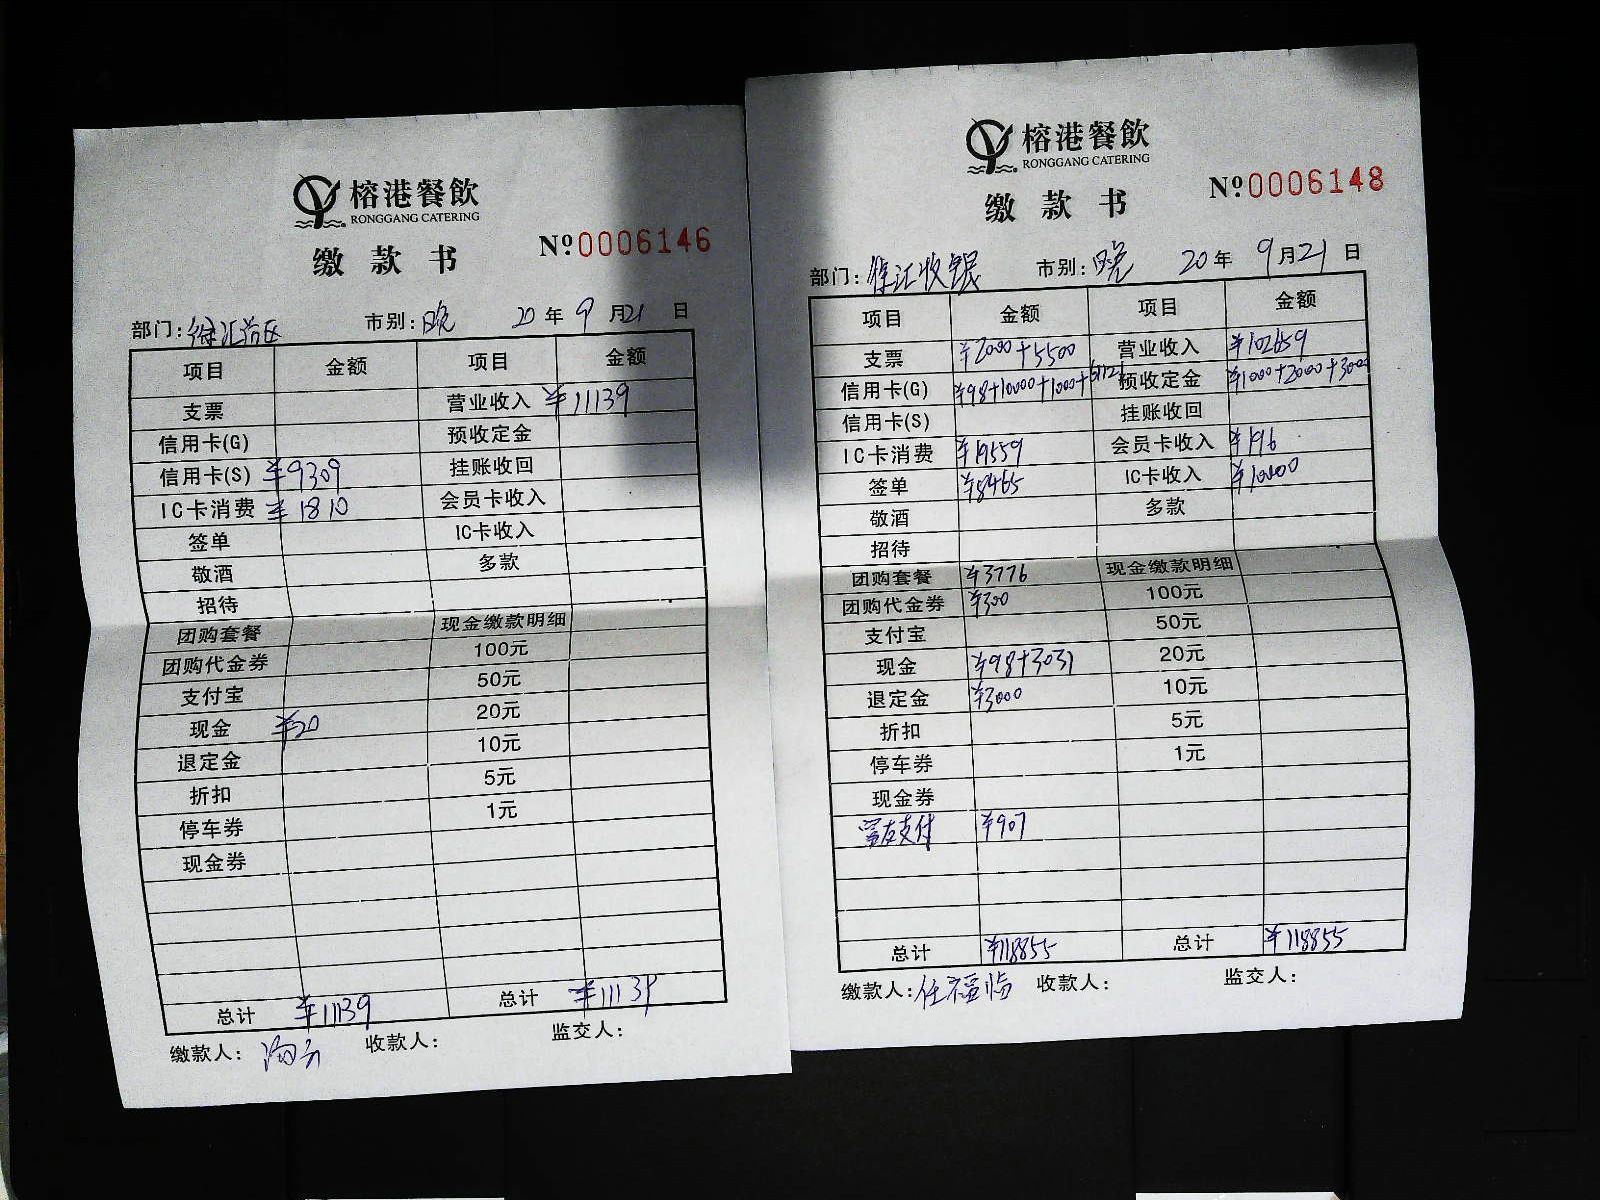 榕港餐飲
RONGGANG CATERING
缴款书
Nº0006146
部门: 徐汇 市别: 晚 20年9月21日
项目 金额 项目 金额
支票 营业收入 ¥11139
信用卡(G) 预收定金
信用卡(S) ¥9309 挂账收回
IC卡消费 ¥1810 会员卡收入
签单 IC卡收入
敬酒 多款
招待
团购套餐 现金缴款明细
团购代金券 100元
支付宝 50元
现金 ¥20 20元
退定金 10元
折扣 5元
停车券 1元
现金券
总计 ¥11139 总计 ¥11139
缴款人: 收款人: 监交人:
榕港餐飲
RONGGANG CATERING
缴款书
Nº0006148
部门: 徐汇收银 市别: 晚 20年9月21日
项目 金额 项目 金额
支票 ¥2000+5500 营业收入 ¥102659
信用卡(G) ¥98+10000+1000+61121 预收定金 ¥1000+2000+3000
信用卡(S) 挂账收回
IC卡消费 ¥19559 会员卡收入 ¥196
签单 ¥8465 IC卡收入 ¥10000
敬酒 多款
招待
团购套餐 ¥3776 现金缴款明细
团购代金券 ¥300 100元
支付宝 50元
现金 ¥98+3031 20元
退定金 ¥3000 10元
折扣 5元
停车券 1元
现金券
支付 ¥907
总计 ¥118855 总计 ¥118855
缴款人: 任福临 收款人: 监交人: